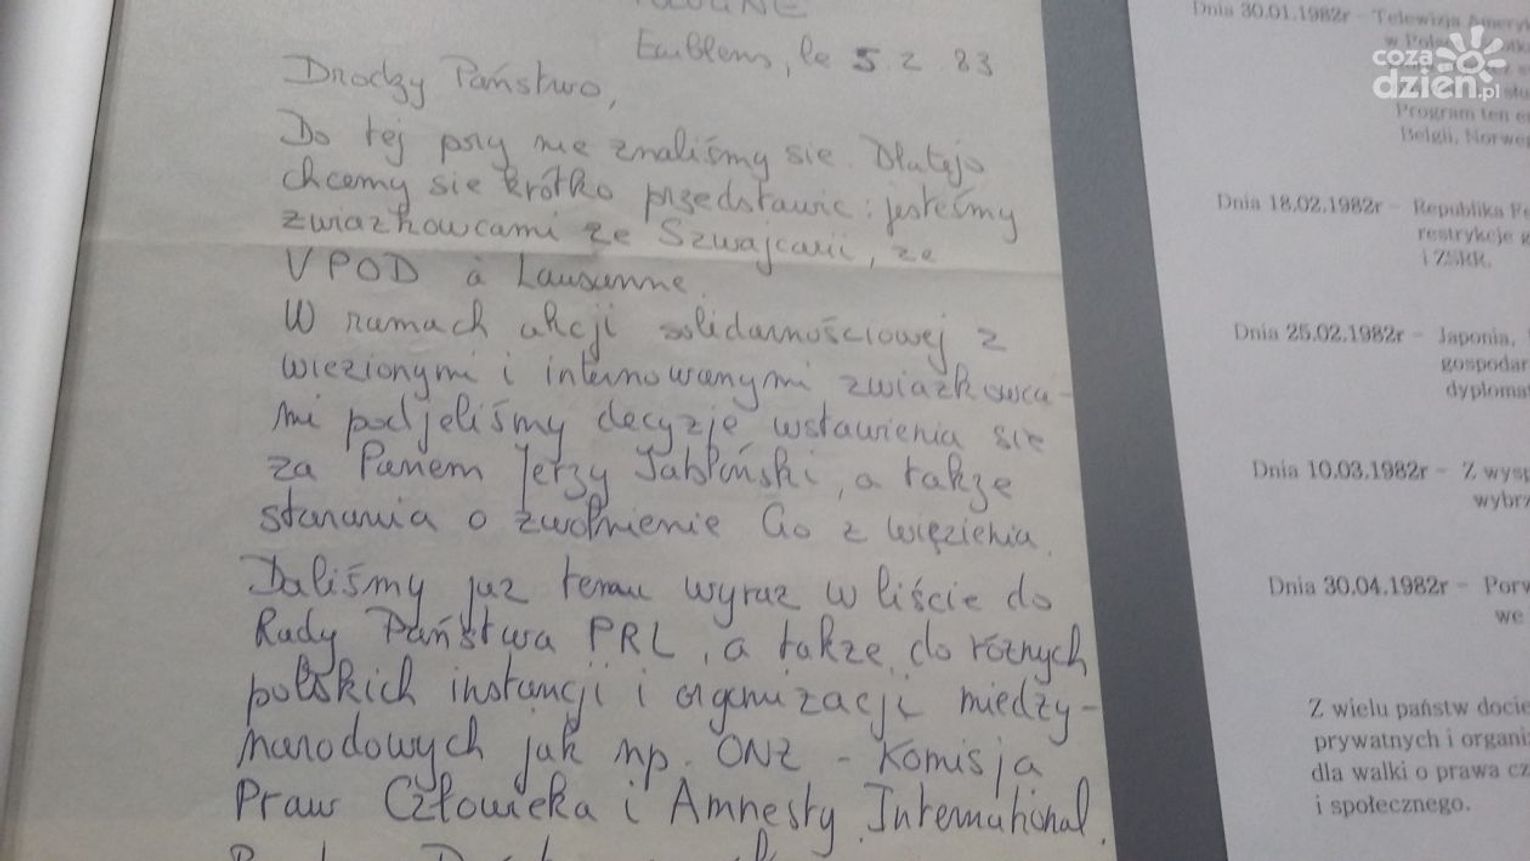 Emblens, le 5 2 83
Drodzy Państwo,
Do tej pory nie znaliśmy sie. Dlatego
chcemy sie krótko przedstawic: jesteśmy
związkowcami ze Szwajcarii, ze
VPOD à Lausanne.
W ramach akcji solidarnościowej z
wiezionymi i internowanymi zwiazkowca-
mi podjeliśmy decyzję wstawienia sie
za Panem Jerzy Jabłoński, a takze
starania o zwolnienie Go z więzienia.
Daliśmy juz temu wyraz w liście do
Rady Państwa PRL, a takze do róznych
polskich instancji i organizacji miedzy-
narodowych jak np. ONZ - Komisja
Praw Człowieka i Amnesty International.
Dnia 30.01.1982r - Telewizja
Program ten
Belgii,
Dnia 18.02.1982r - Republika
restrykcje
i ZSRR.
Dnia 25.02.1982r - Japonia,
gospodar
dyplomat
Dnia 10.03.1982r - Z wysp
wybrz
Dnia 30.04.1982r - Porw
we
Z wielu państw docie
prywatnych i organi
dla walki o prawa cz
i społecznego.
coza
dzien.pl